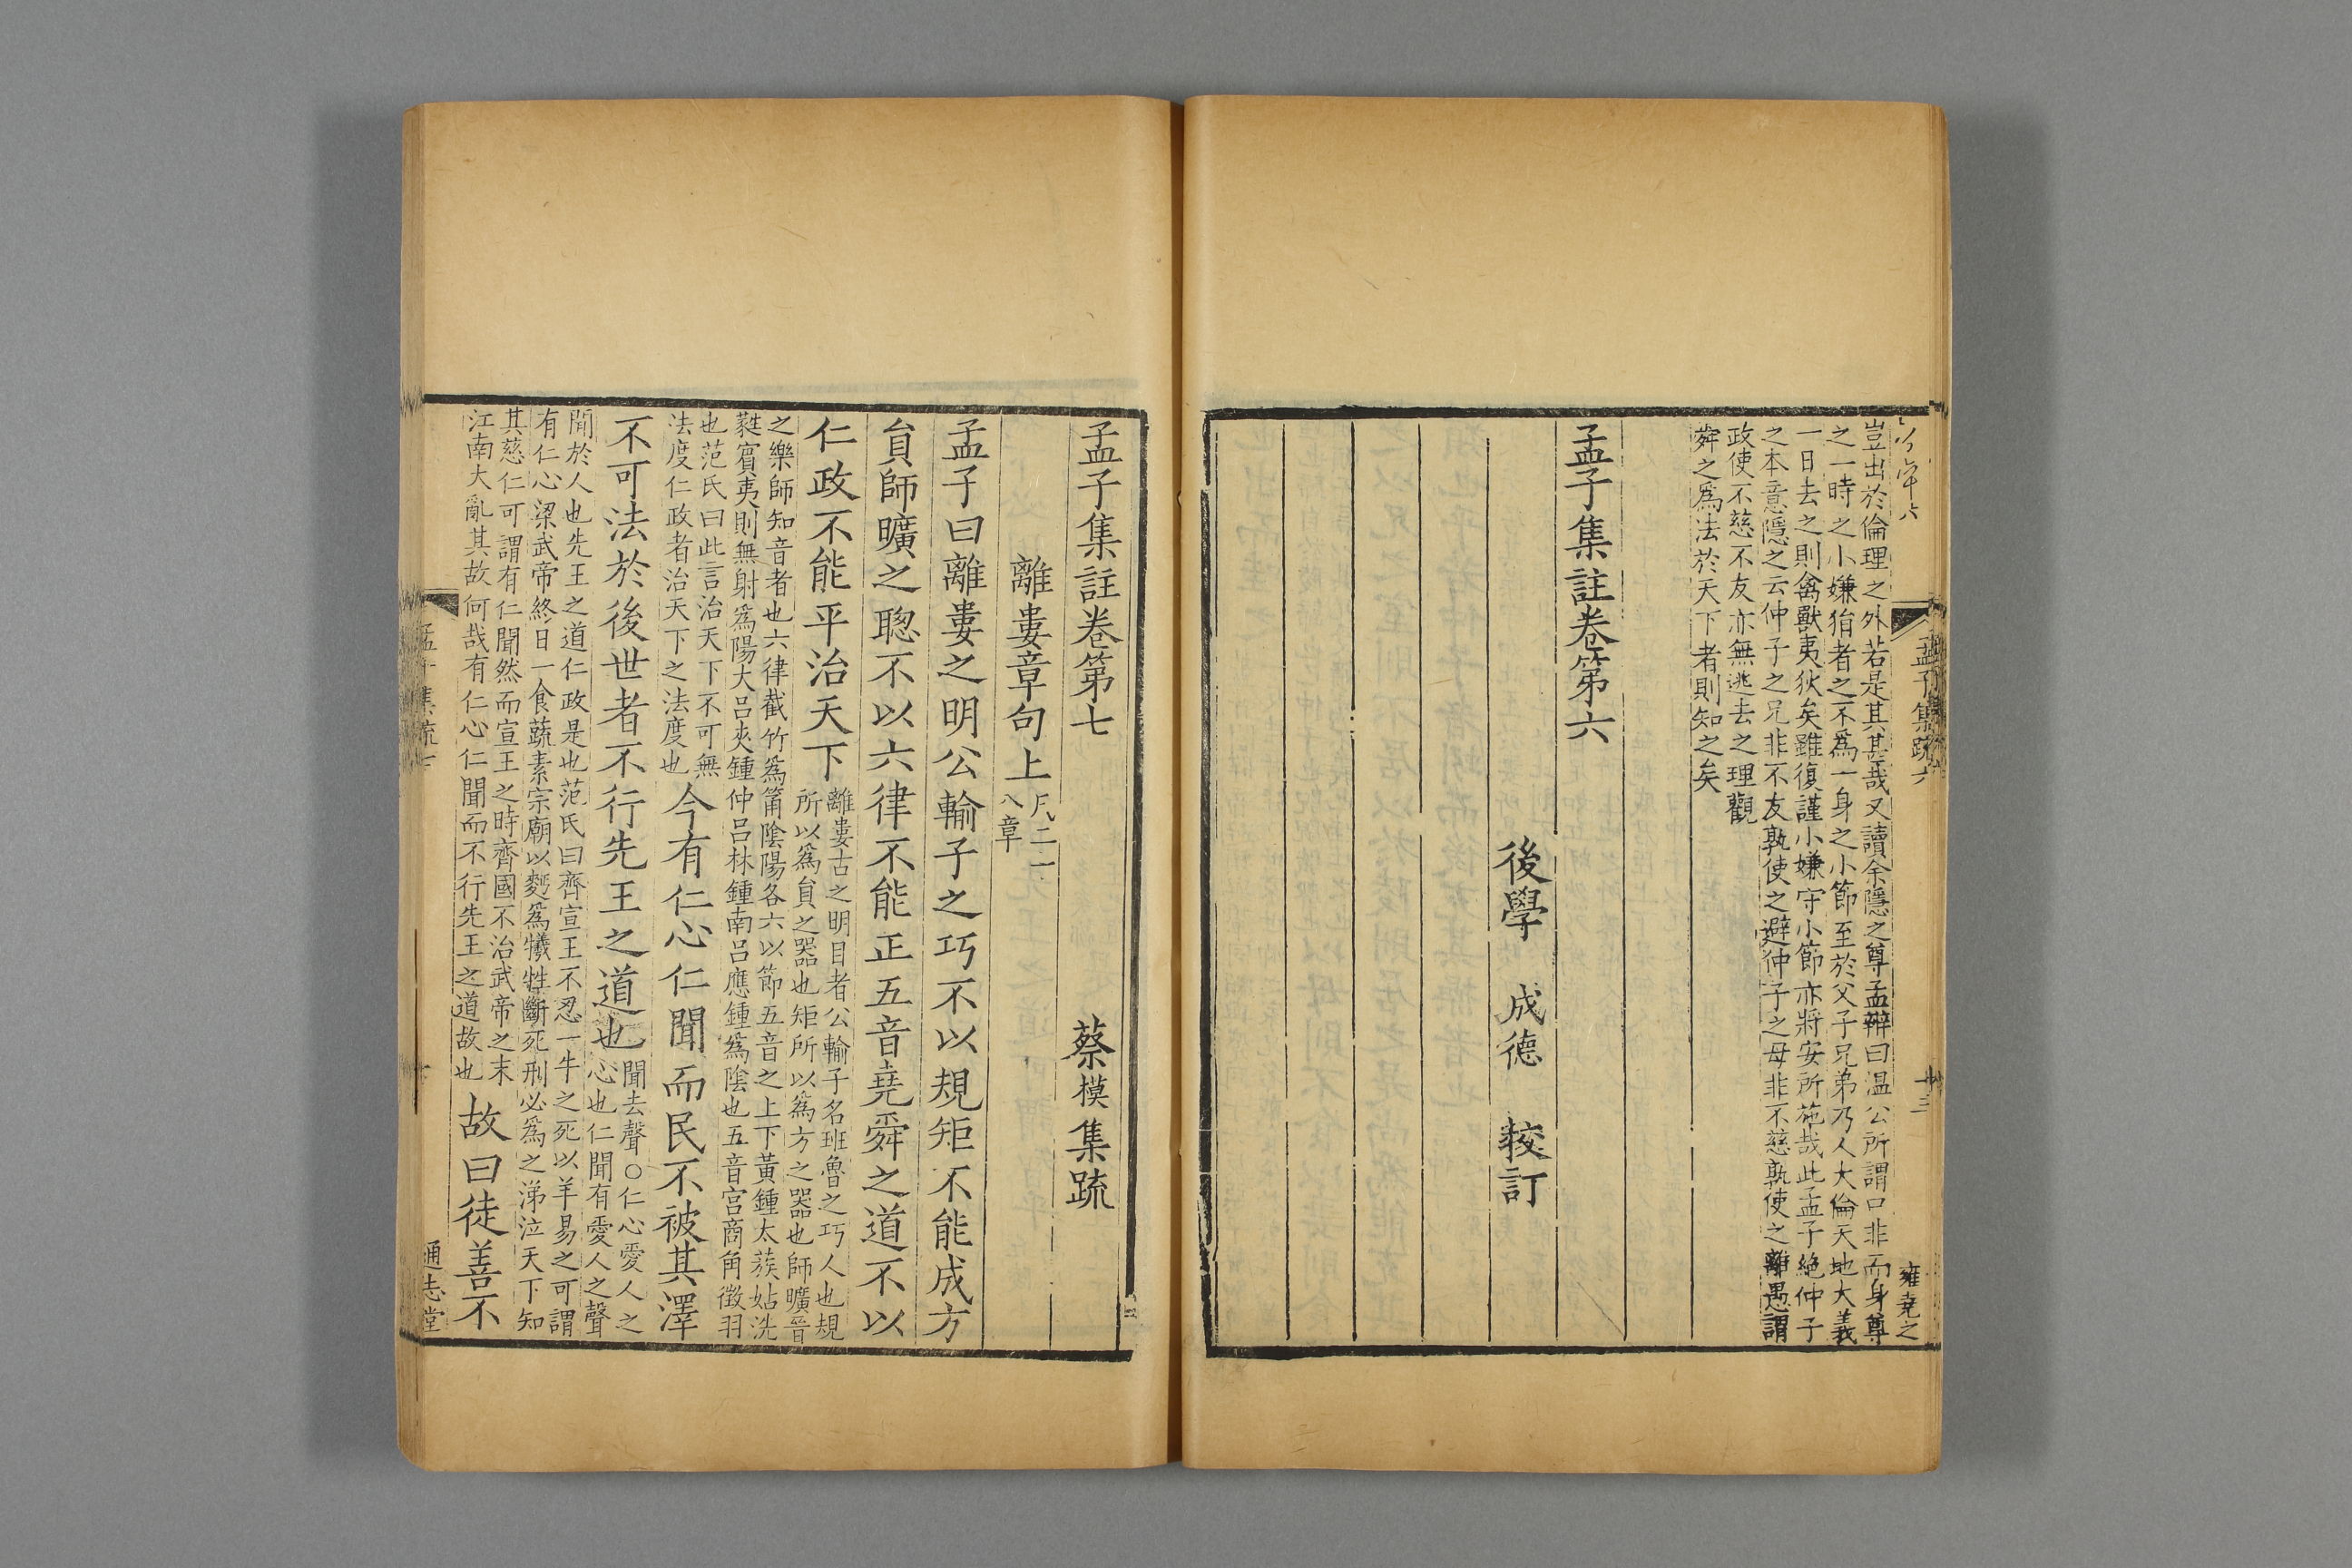 豈出於倫理之外若是其甚哉又讀余隱之尊孟辨曰温公所謂口非而身尊
之一時之小嫌狷者之不為一身之小節至於父子兄弟乃人大倫天地大義
一日去之則禽獸夷狄矣雖復謹小嫌守小節亦將安所施哉此孟子絶仲子
之本意隱之云仲子之兄非不友孰使之避仲子之母非不慈孰使之離愚謂
政使不慈不友亦無逃去之理觀
舜之爲法於天下者則知之矣
孟子集註卷第六
後學 成德 挍訂
孟子集疏六
雍堯之
孟子集註卷第七
蔡模集疏
離婁章句上
凡二十
八章
孟子曰離婁之明公輸子之巧不以規矩不能成方
貟師曠之聰不以六律不能正五音堯舜之道不以
仁政不能平治天下
離婁古之明目者公輸子名班魯之巧人也規
所以爲貟之器也矩所以爲方之器也師曠晉
之樂師知音者也六律截竹爲筩陰陽各六以節五音之上下黃鍾太蔟姑洗
蕤賓夷則無射爲陽大呂夾鍾仲呂林鍾南呂應鍾爲陰也五音宫商角徵羽
也范氏曰此言治天下不可無
法度仁政者治天下之法度也
今有仁心仁聞而民不被其澤
不可法於後世者不行先王之道也
聞去聲○仁心愛人之
心也仁聞有愛人之聲
聞於人也先王之道仁政是也范氏曰齊宣王不忍一牛之死以羊易之可謂
有仁心梁武帝終日一食蔬素宗廟以麪爲犧牲斷死刑必爲之涕泣天下知
其慈仁可謂有仁聞然而宣王之時齊國不治武帝之末
江南大亂其故何哉有仁心仁聞而不行先王之道故也
故曰徒善不
孟子集疏七
通志堂